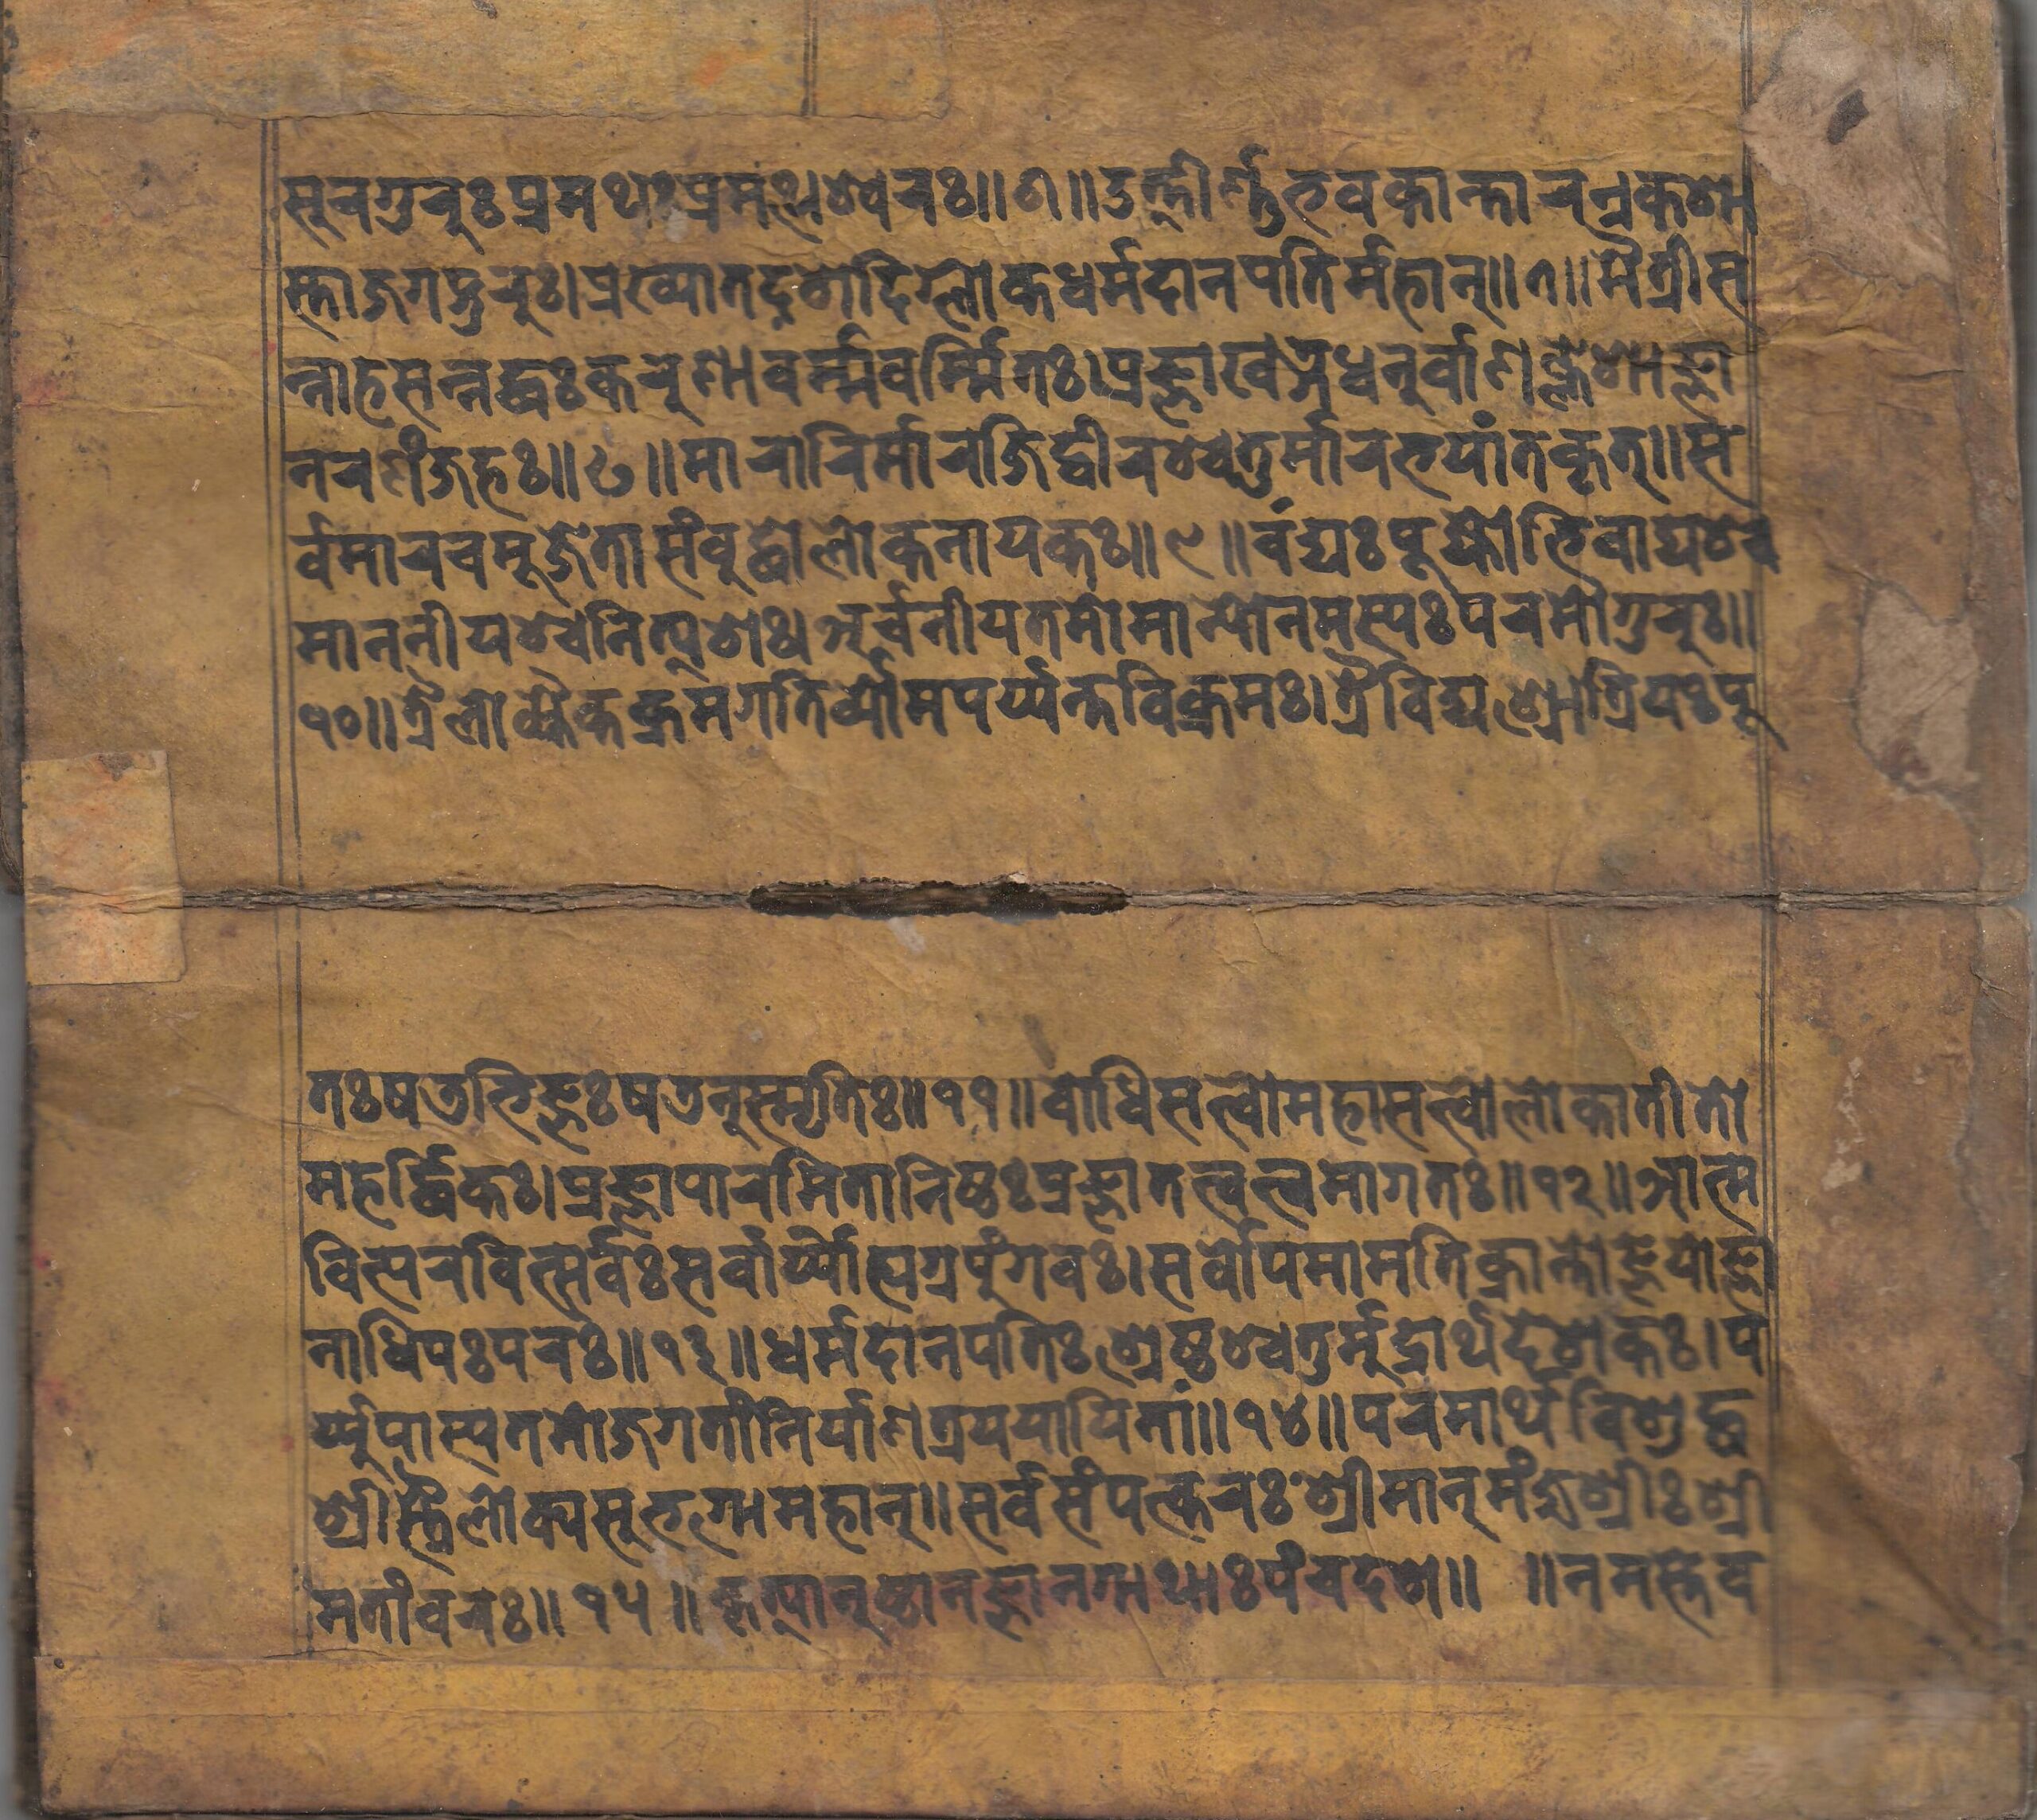 सुरगुरुः प्रमथः प्रमथेश्वरः॥ ६॥ उत्तीर्ण्णभवकान्तार एकशा
स्ताजगद्गुरुः। प्रख्यातदशदिग्लोकधर्मदानपतिर्महान्॥ ७॥ मैत्रीस
न्नाहसन्नद्धः करुणावर्म्मवर्म्मितः। प्रज्ञाखड्गधनुर्वाणक्लेशाज्ञा
नरणंजहः॥ ८॥ मारारिर्मारजिद्वीरश्चतुर्मारभयांतकृत्॥ स
र्वमारचमूजेता संबुद्धो लोकनायकः॥ ९॥ वंद्यः पूज्योभिवाद्यश्च
माननीयश्चनित्यशः। अर्चनीयतमोमान्योनमस्यः परमोगुरुः॥
१०॥ त्रैलोक्यैकक्रमगतिर्व्योमपर्य्यन्तविक्रमः। त्रैविद्यश्रोत्रियः पू
तः षतभिज्ञः षतनुस्मृतिः॥ ११॥ बोधिसत्त्वोमहासत्त्वोलोकातीतो
महर्द्धिकः। प्रज्ञापारमितानिष्ठः प्रज्ञातत्त्वत्वमागतः॥ १२॥ आत्म
वित्परवित्सर्वः सर्वीर्य्योह्यग्रपुंगवः। सर्वोपमामतिक्रान्तोज्ञेयोज्ञा
नाधिपः परः॥ १३॥ धर्मदानपतिः श्रेष्ठश्चतुर्मुद्रार्थदेशकः। प
र्य्युपास्यतमोजगतांनिर्याणत्रययायिनां॥ १४॥ परमार्थविशुद्ध
श्रीस्त्रैलोक्यसुभगोमहान्॥ सर्वसंपत्करः श्रीमान् मंजुश्रीः श्री
मतांवरः॥ १५॥ कृत्यानुष्ठानज्ञानगाथाः पंचदश॥ ॥ नमस्तेव